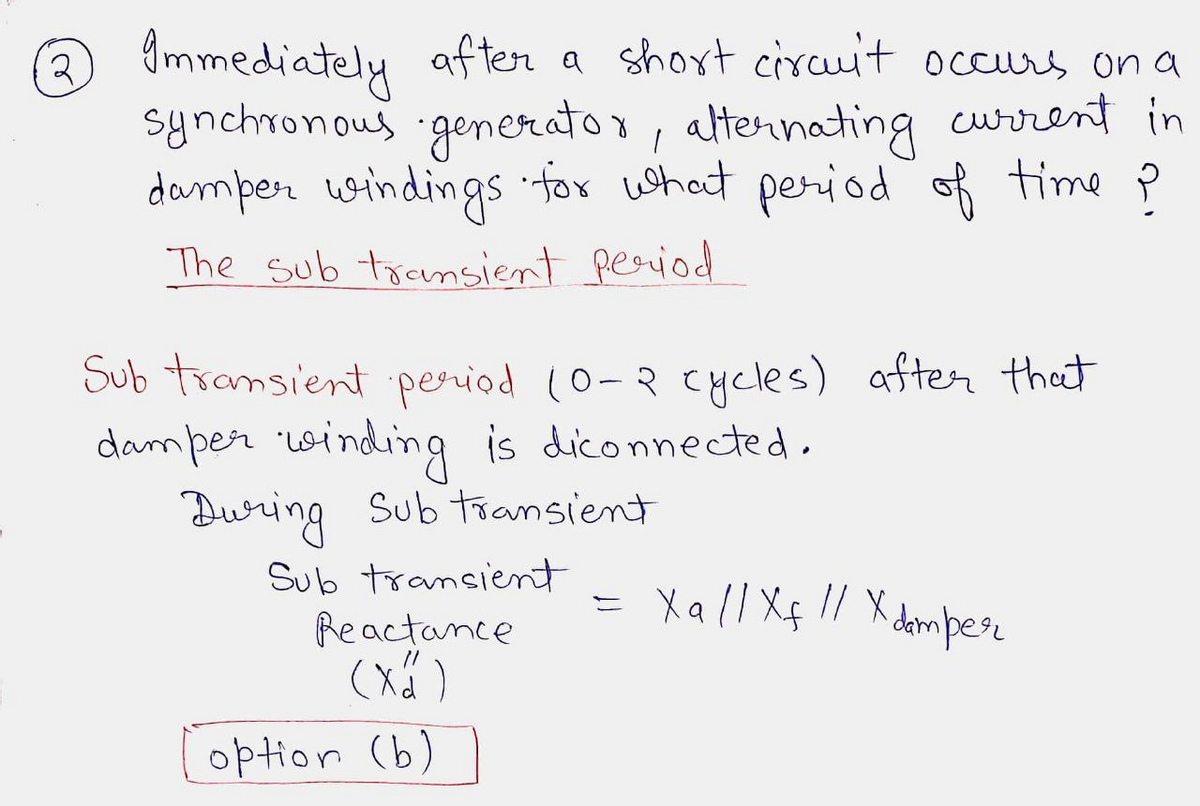 2 Immediately after a short circuit occurs on a
synchronous generator, alternating current in
damper windings for what period of time ?
The sub transient period
Sub transient period (0-2 cycles) after that
damper winding is diconnected.
During Sub transient
Sub transient
Reactance = Xa // Xf // Xdamper
(Xd'')
option (b)